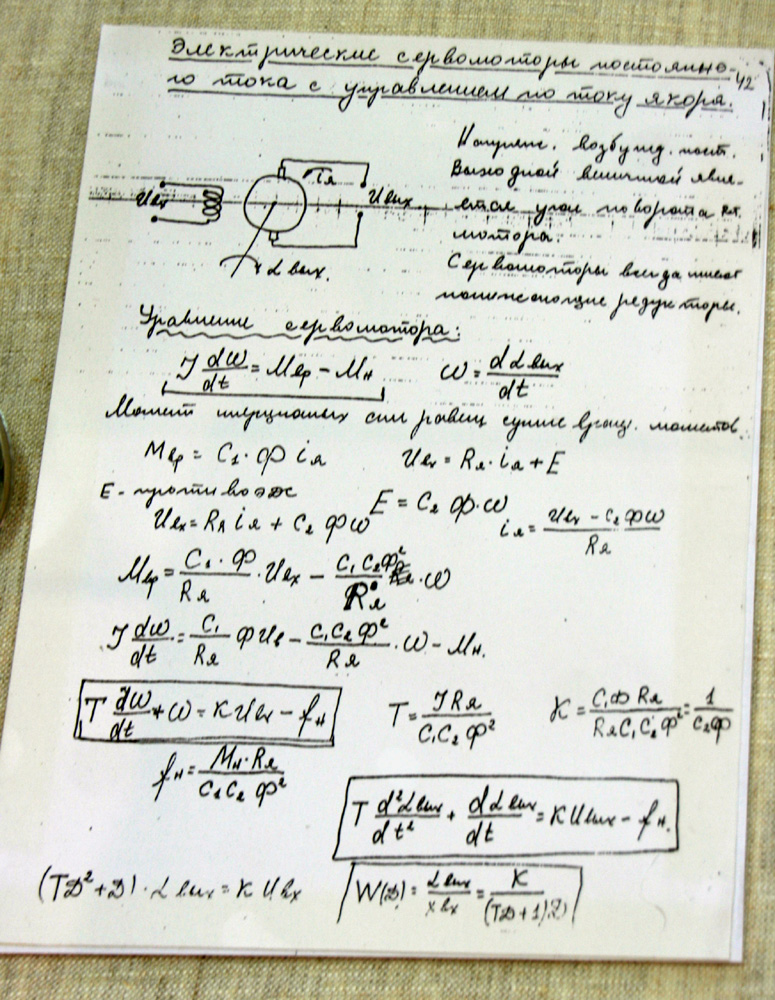 Электрические сервомоторы постоянно-
го тока с управлением по току якоря.
42
Напряж. возбужд. пост.
Выходной величиной явля-
ется угол поворота
мотора.
Сервомоторы всегда имеют
понижающие редукторы.
Uвх
Iя
Uвых
αвых.
Уравнение сервомотора:
J dω/dt = Mвр - Mн ω = dαвых/dt
Момент инерционных сил равен сумме вращ. моментов.
Mвр = C₁·Ф iя Uвх = Rя·iя + E
E - противоэдс E = C₂ Ф·ω
Uвх = Rя iя + C₂ Фω iя = (Uвх - C₂Фω)/Rя
Mвр = (C₁·Ф)/Rя · Uвх - (C₁C₂Ф²)/Rя · ω
J dω/dt = C₁/Rя Ф Uв - (C₁C₂Ф²)/Rя · ω - Mн.
T dω/dt + ω = K Uвх - fн T = JRя/(C₁C₂Ф²) K = (C₁Ф Rя)/(RяC₁C₂Ф²) = 1/(C₂Ф)
fн = (Mн·Rя)/(C₁C₂Ф²)
T d²αвых/dt² + dαвых/dt = K Uвых - fн.
(TD²+D)·αвых = K Uвх W(D) = αвых/xвх = K/((TD+1)D)